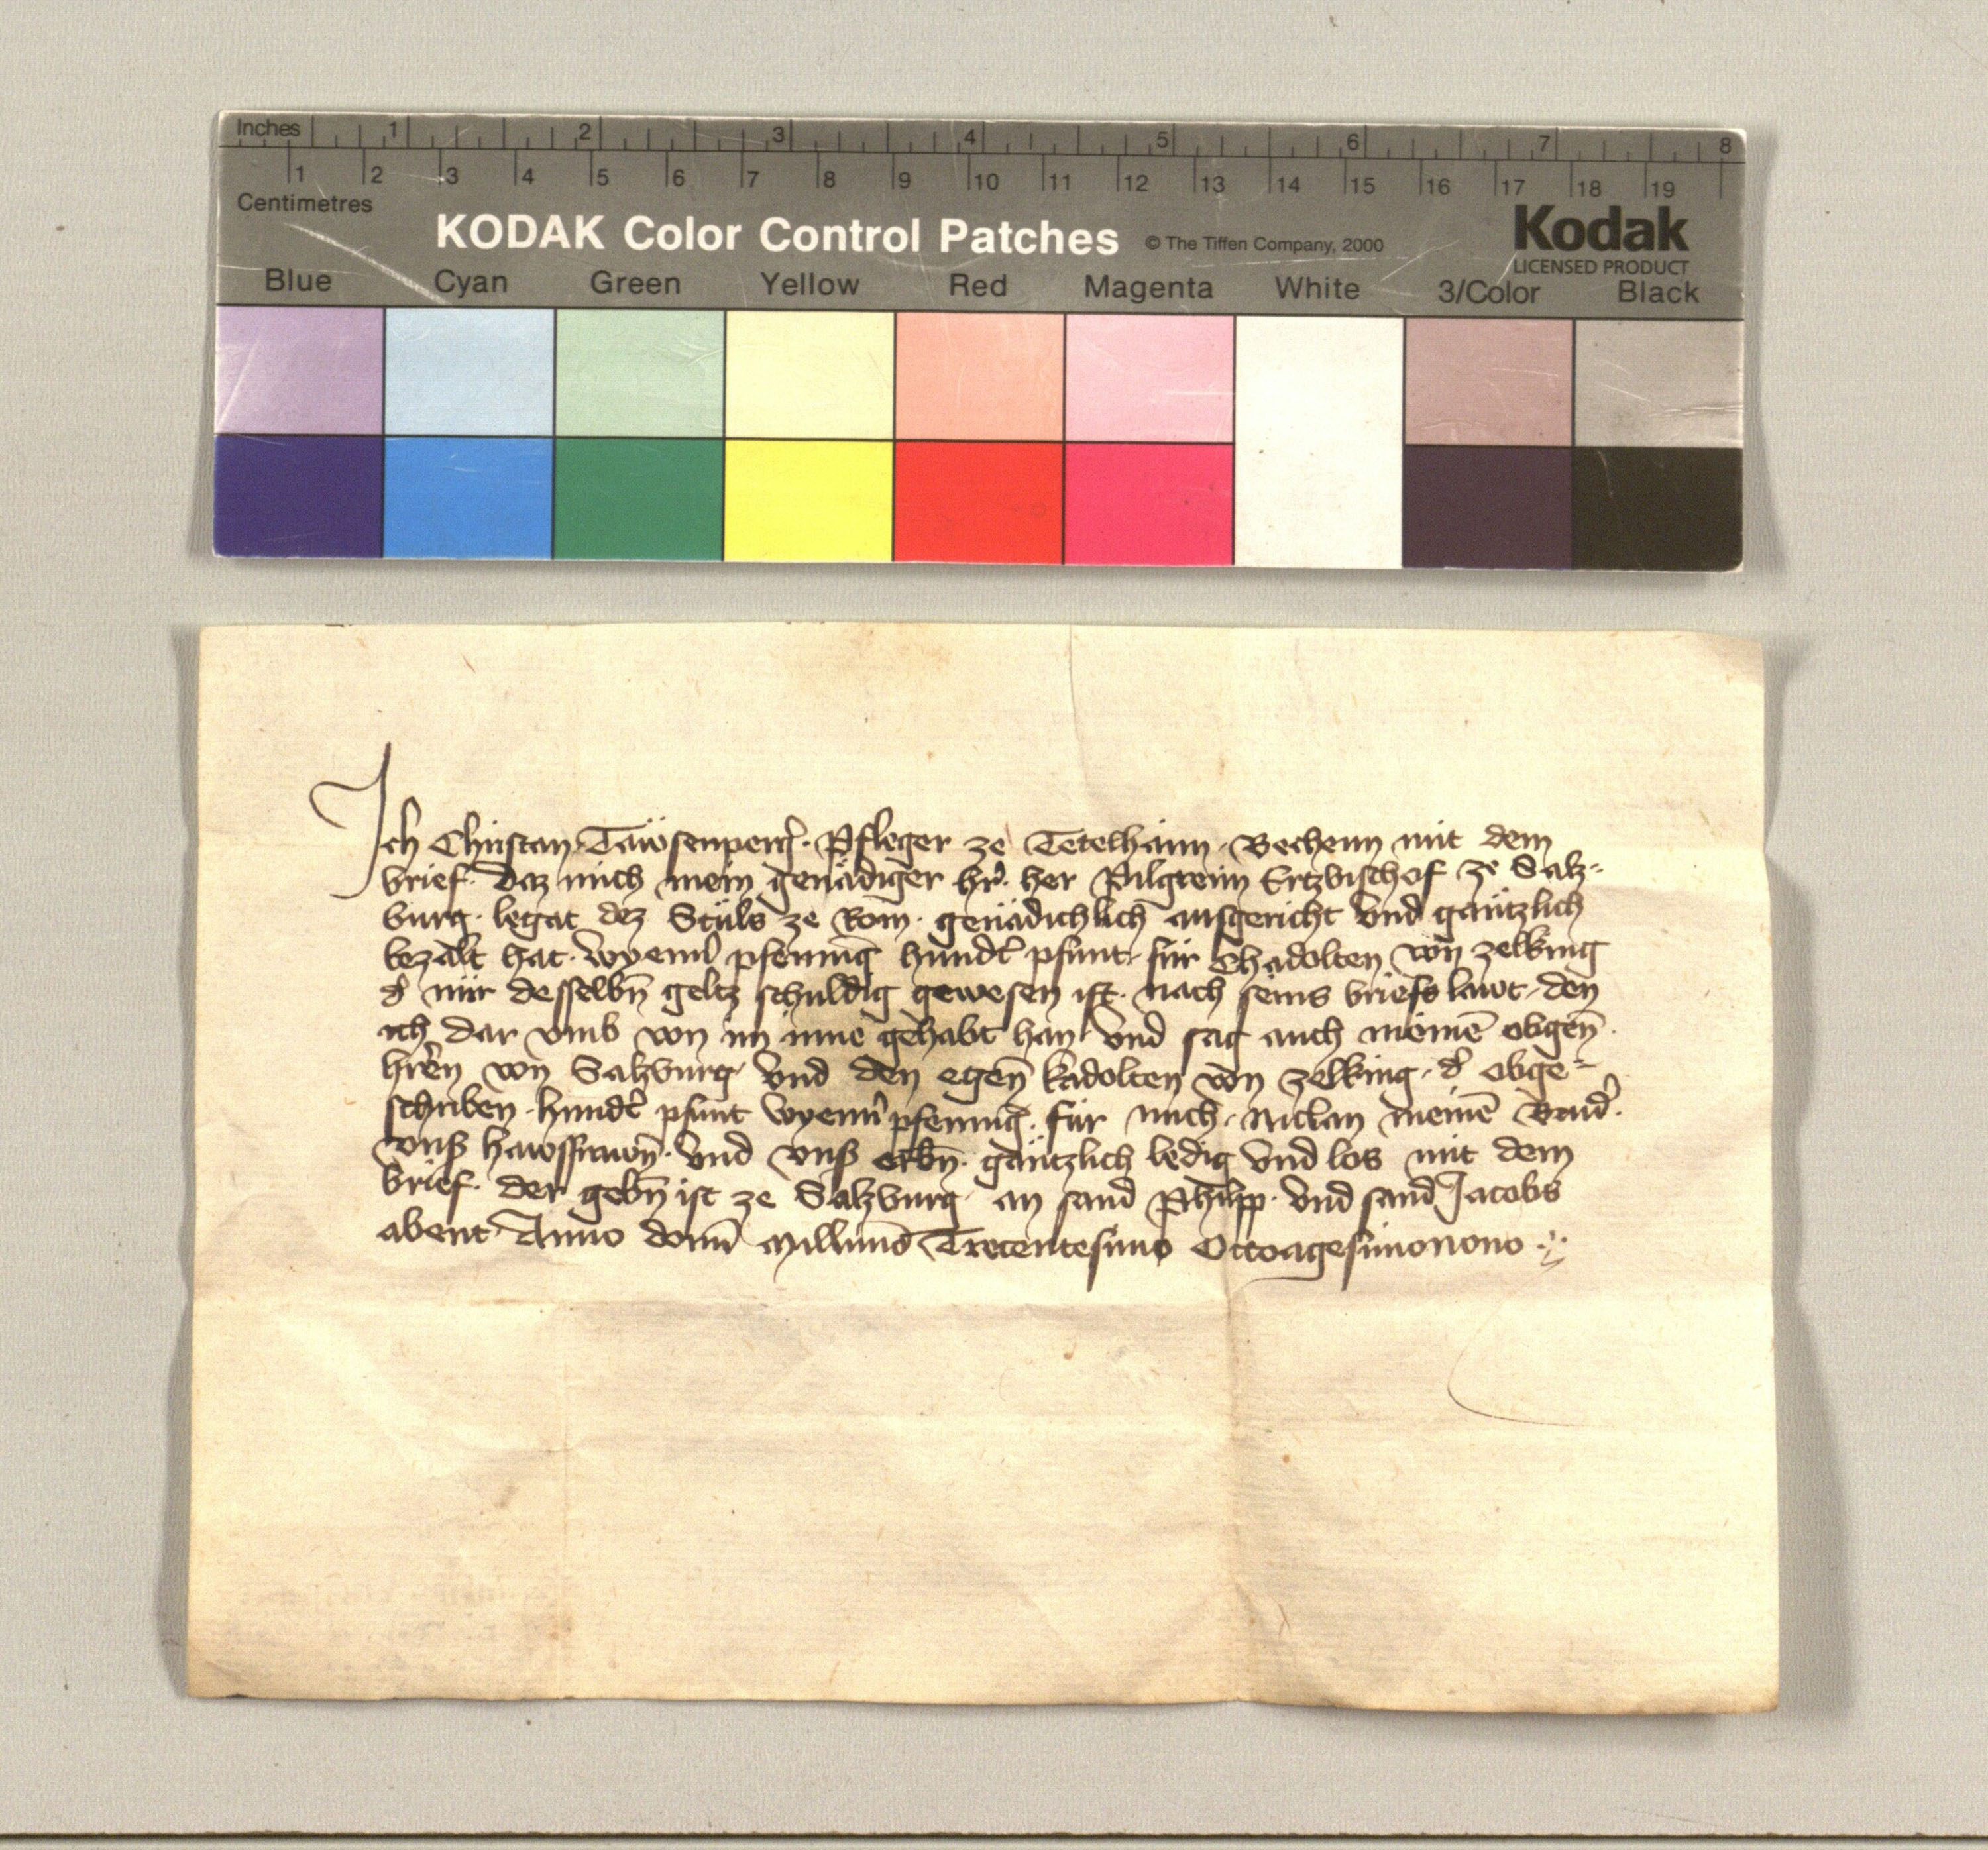 Inches 1 2 3 4 5 6 7 8
1 2 3 4 5 6 7 8 9 10 11 12 13 14 15 16 17 18 19
Centimetres
KODAK Color Control Patches © The Tiffen Company, 2000 Kodak
LICENSED PRODUCT
Blue Cyan Green Yellow Red Magenta White 3/Color Black
Ich Christan Täwsenperg̉. Pfleger ze Tetelhaim. Vechenn mit dem
brief. daz mich mein genädiger hr̉. her Pilgreim Ertzbischof ze Salz-
burg. legat dez Stuls ze Rom. genädichlich ausgericht vnd gäntzlich
bezalt hat. wyenn̉ pfenning hundt̉ pfunt. für Chadolten von zelking
d̉ mir desselbn̄ geltz schuldig gewesen ist. nach seins briefs lawt. den
ich dar vmb von im inne gehabt han. vnd sag auch meinē obgen̄.
hr̉en von Salzburg. vnd den egen̄ kadolten von zelking. d̉ obge-
schriben. hundt̉ pfunt wyenn̉ pfenning̉. für mich. Niclan meinē Brud̉.
vnß hawsfrawn̄. vnd vnß erbn̄. gäntzlich ledig vnd los mit dem
brief. der gebn̄ ist ze Salzburg. an sand Philipp. vnd sand Jacobs
abent Anno domī Millimō Trecentesimo Octoagesimonono